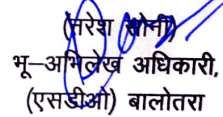 (सुरेश सोनी)
भू–अभिलेख अधिकारी,
(एसडीओ) बालोतरा